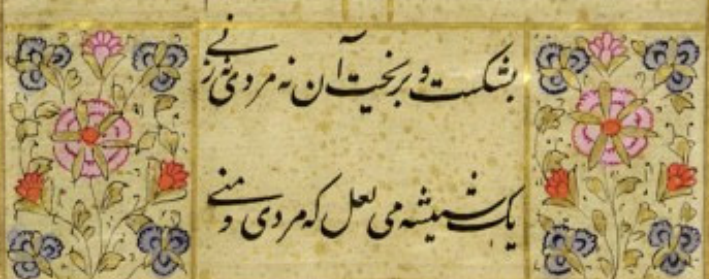 بشکست و بریخت آن نه مردی نه زنی
یک شیشه می لعل که مردی و منی